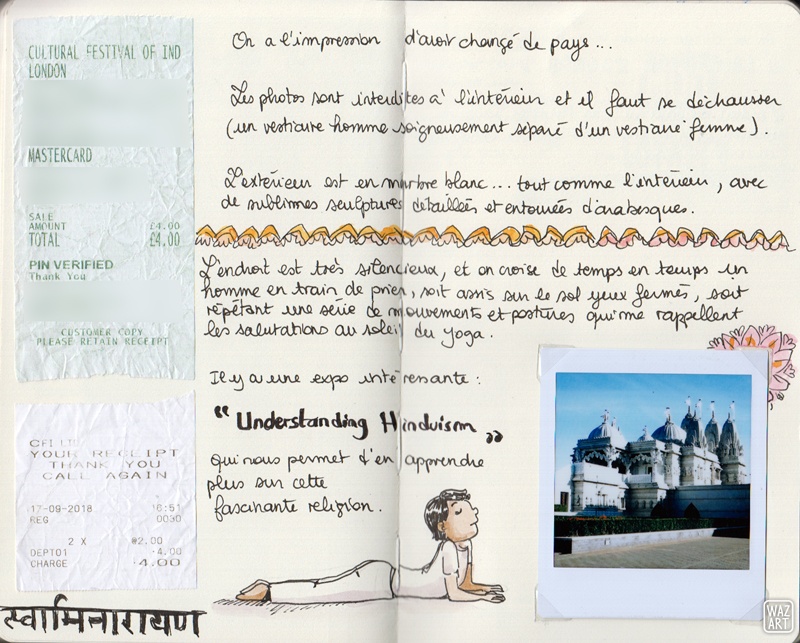 CULTURAL FESTIVAL OF IND
LONDON
MASTERCARD
SALE
AMOUNT £4.00
TOTAL £4.00
PIN VERIFIED
Thank You
CUSTOMER COPY
PLEASE RETAIN RECEIPT
YOUR RECEIPT
THANK YOU
CALL AGAIN
17-09-2018 16:51
REG 0030
2 X @2.00
DEPT01 4.00
CHARGE 4.00
स्वामिनारायण
On a l'impression d'avoir changé de pays...
Les photos sont interdites à l'intérieur et il faut se déchausser
(un vestiaire homme soigneusement séparé d'un vestiaire femme).
L'extérieur est en marbre blanc... tout comme l'intérieur, avec
de sublimes sculptures détaillées et entourées d'arabesques.
L'endroit est très silencieux, et on croise de temps en temps un
homme en train de prier, soit assis sur le sol yeux fermés, soit
répétant une série de mouvements et postures qui me rappellent
les salutations au soleil du yoga.
Il y a une expo intéressante :
"Understanding Hinduism"
qui nous permet d'en apprendre
plus sur cette
fascinante religion.
WAZ
ART